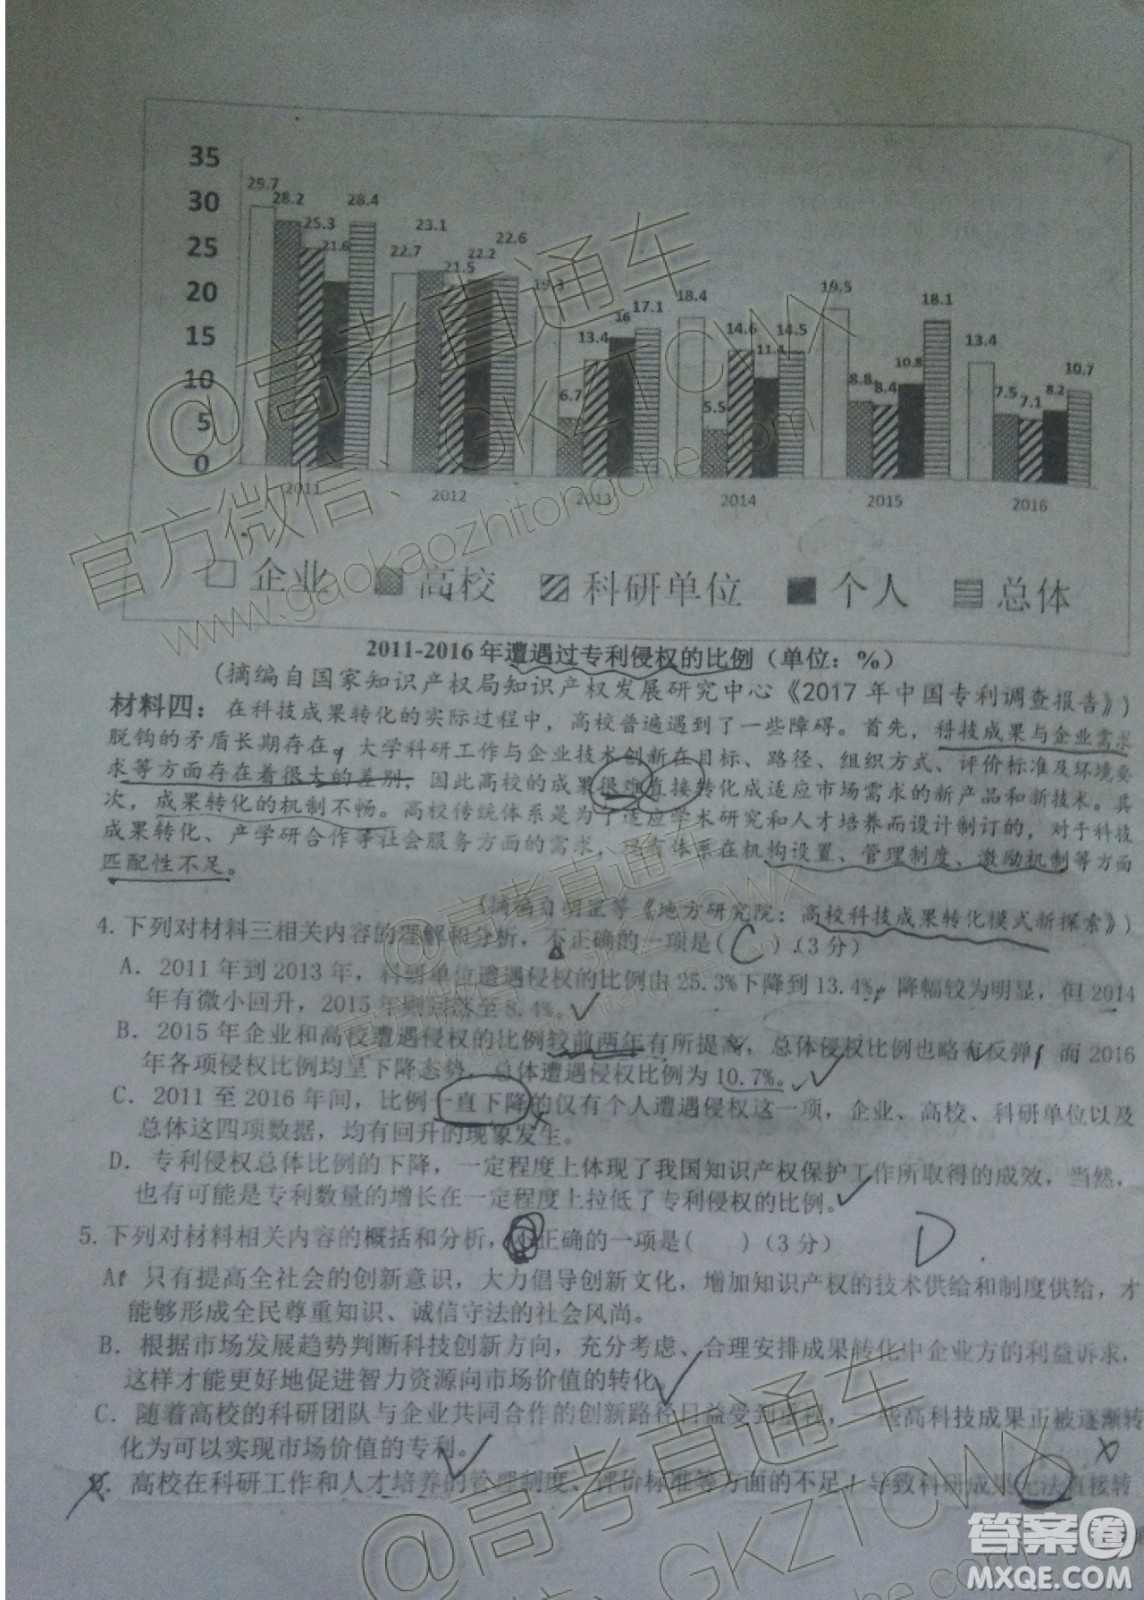 35
30
25
20
15
10
5
0
29.7 28.2 25.3 21.6 28.4
22.7 23.1 21.5 22.2 22.6
19.3 6.7 13.4 16 17.1
18.4 5.5 14.6 11.4 14.5
19.5 8.8 8.4 10.8 18.1
13.4 7.5 7.1 8.2 10.7
2011 2012 2013 2014 2015 2016
企业 高校 科研单位 个人 总体
2011-2016 年遭遇过专利侵权的比例（单位：%）
(摘编自国家知识产权局知识产权发展研究中心《2017 年中国专利调查报告》)
材料四：在科技成果转化的实际过程中，高校普遍遇到了一些障碍。首先，科技成果与企业需求
脱钩的矛盾长期存在，大学科研工作与企业技术创新在目标、路径、组织方式、评价标准及环境要
求等方面存在着很大的差别，因此高校的成果很难直接转化成适应市场需求的新产品和新技术。其
次，成果转化的机制不畅。高校传统体系是为了适应学术研究和人才培养而设计制订的，对于科技
成果转化、产学研合作等社会服务方面的需求，已有体系在机构设置、管理制度、激励机制等方面
匹配性不足。
等《地方研究院：高校科技成果转化模式新探索》)
4. 下列对材料三相关内容的理解和分析，不正确的一项是( C )（3 分）
A．2011 年到 2013 年，科研单位遭遇侵权的比例由 25.3%下降到 13.4%，降幅较为明显，但 2014
年有微小回升，2015 年则回落至 8.4%。
B．2015 年企业和高校遭遇侵权的比例较前两年有所提高，总体侵权比例也略有反弹，而 2016
年各项侵权比例均呈下降态势，总体遭遇侵权比例为 10.7%。
C．2011 至 2016 年间，比例一直下降的仅有个人遭遇侵权这一项，企业、高校、科研单位以及
总体这四项数据，均有回升的现象发生。
D．专利侵权总体比例的下降，一定程度上体现了我国知识产权保护工作所取得的成效，当然，
也有可能是专利数量的增长在一定程度上拉低了专利侵权的比例。
5. 下列对材料相关内容的概括和分析，不正确的一项是(　　)（3 分） D
A．只有提高全社会的创新意识，大力倡导创新文化，增加知识产权的技术供给和制度供给，才
能够形成全民尊重知识、诚信守法的社会风尚。
B．根据市场发展趋势判断科技创新方向，充分考虑、合理安排成果转化中企业方的利益诉求，
这样才能更好地促进智力资源向市场价值的转化。
C．随着高校的科研团队与企业共同合作的创新路径日益受到重视，一些高科技成果正被逐渐转
化为可以实现市场价值的专利。
D．高校在科研工作和人才培养的管理制度、评价标准等方面的不足，导致科研成果无法直接转
@高考直通车
官方微信：GKZTCWX
www.gaokaozhitongche.com
@高考直通车
GKZTCWX
@高考直通车
GKZTCWX
答案圈
MXQE.COM